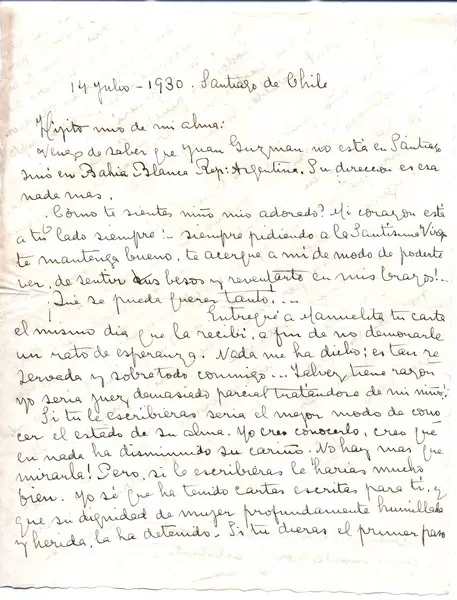 14 Julio - 1930. Santiago de Chile
Hijito mio de mi alma:
Vengo de saber que Juan Guzman no está en Santiago
sinó en Bahia Blanca Rep: Argentina. Su direccion es esa
nada mas.
Cómo te sientes niño mio adorado? Mi corazon está
a tu lado siempre! - siempre pidiendo a la Santísima Virgen
te mantenga bueno, te acerque a mi de modo de poderte
ver, de sentir tus besos y reventarte en mis brazos!...
¡Qué se pueda querer tanto!...
Entregué a Manuelita tu carta
el mismo dia que la recibi, a fin de no demorarle
un rato de esperanza. Nada me ha dicho; es tan re
servada y sobre todo conmigo... Talvez tiene razón
yo seria juez demasiado parcial tratándose de mi niño!
Si tu le escribieras seria el mejor modo de cono
cer el estado de su alma. Yo creo conocerlo, creo que
en nada ha disminuido su cariño. No hay mas que
mirarla! Pero, si le escribieras le harias mucho
bien. Yo sé que ha tenido cartas escritas para ti, y
que su dignidad de mujer profundamente humillada
y herida, la ha detenido. Si tu dieras el primer paso